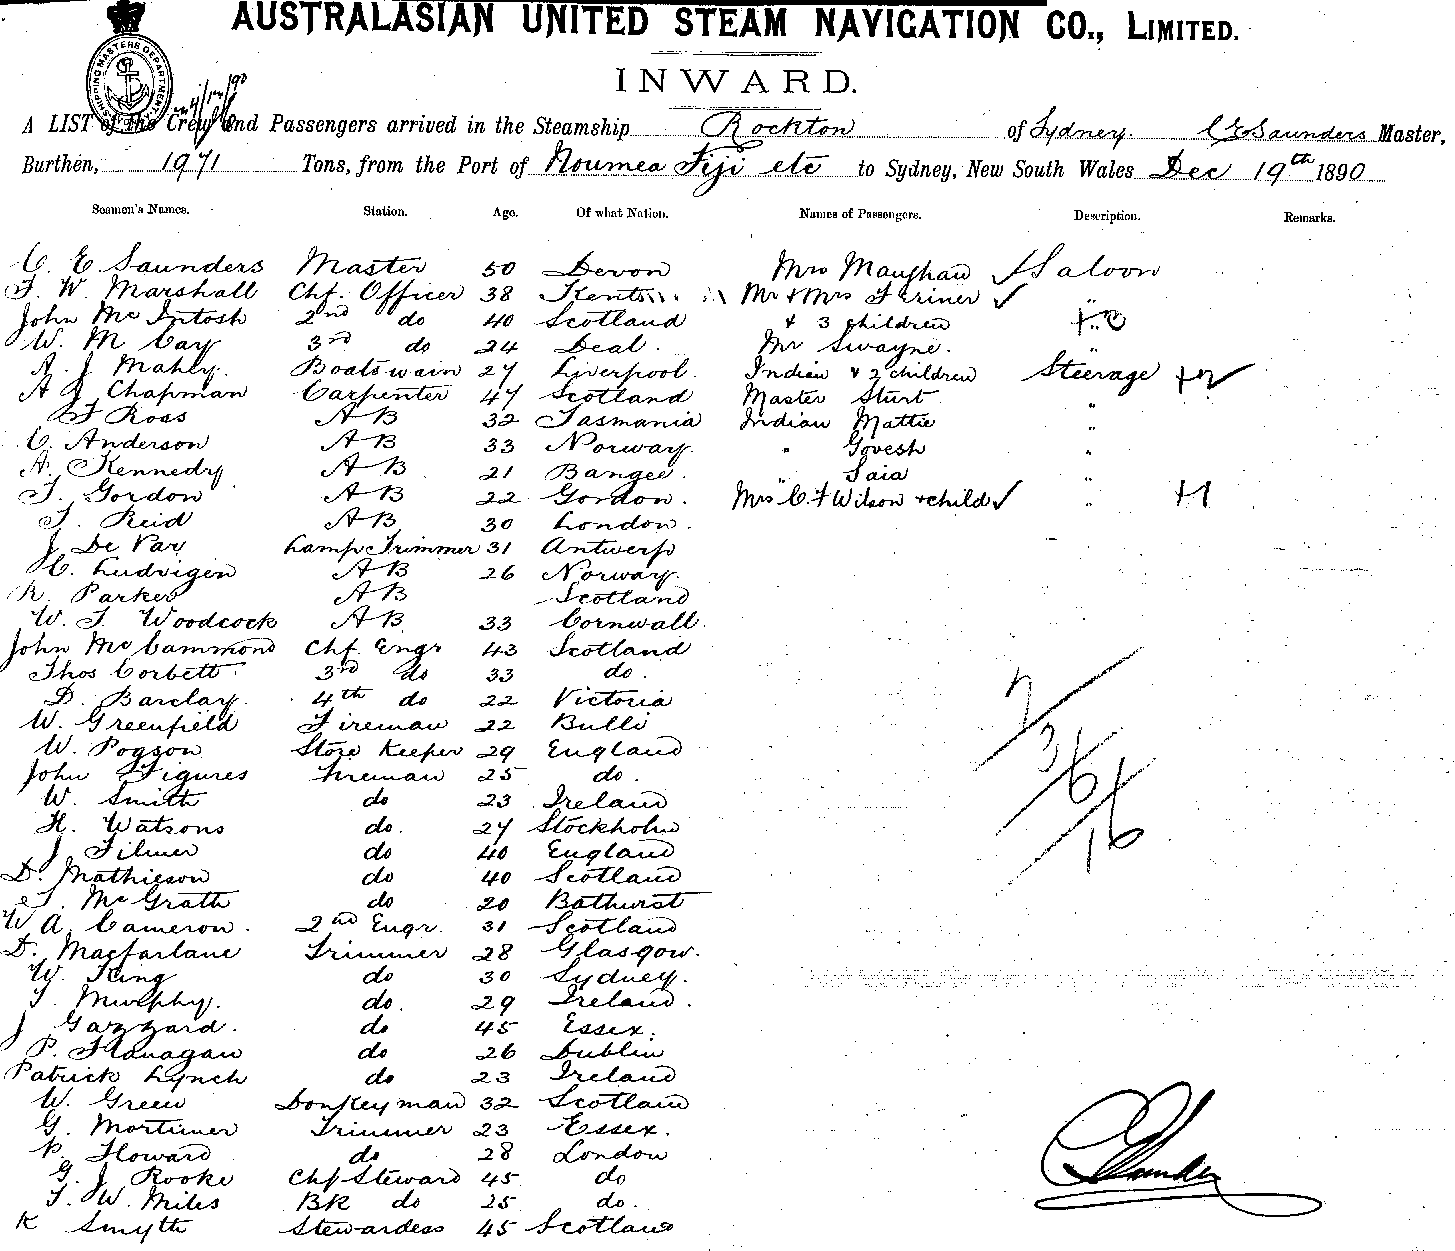 AUSTRALASIAN UNITED STEAM NAVIGATION CO., LIMITED.
SHIPPING MASTERS DEPARTMENT
INWARD.
A LIST of the Crew and Passengers arrived in the Steamship Rockton of Sydney. C E Saunders Master,
Burthen, 1971 Tons, from the Port of Noumea Fiji etc to Sydney, New South Wales Dec 19th 1890
Seamen's Names. Station. Age. Of what Nation. Names of Passengers. Description. Remarks.
C. E. Saunders Master 50 Devon Mrs Maughan ✓ Saloon
F. W. Marshall Chf. Officer 38 Kent Mr & Mrs Feriner ✓ "
John McIntosh 2nd do 40 Scotland & 3 children
W. M Cay 3rd do 24 Deal. Mr Swayne. "
A. J. Mahly. Boatswain 27 Liverpool. Indian & 2 children Steerage +2 ✓
A J Chapman Carpenter 47 Scotland Master Sturt "
F Ross AB 32 Tasmania Indian Mattie "
C. Anderson AB 33 Norway. " Govesh "
A. Kennedy AB 21 " Saia "
T. Gordon AB 22 Gordon. Mrs C. F Wilson + child ✓ " +1
T. Reid AB 30 London.
J. De Vay Lamp Trimmer 31 Antwerp
C. Ludvigen AB 26 Norway.
R. Parker AB Scotland
W. T. Woodcock AB 33 Cornwall.
John McCammond Chf. Engr 43 Scotland
Thos Corbett 3rd do 33 do.
D. Barclay. 4th do 22 Victoria
W. Greenfield Fireman 22 Bulli
W. Pogson Store Keeper 29 England
John Figures Fireman 25 do.
W. Smith do 23 Ireland
H. Watsons do. 27 Stockholm
J Filmer do 40 England
D. Mathieson do 40 Scotland
T. McGrath do 20 Bathurst
W A. Cameron. 2nd Engr. 31 Scotland
D. Macfarlane Trimmer 28 Glasgow.
W. King do 30 Sydney.
T. Murphy. do. 29 Ireland.
J Gazzard. do 45 Essex.
P. Flanagan do 26 Dublin
Patrick Lynch do 23 Ireland
W. Green Donkeyman 32 Scotland
G. Mortimer Trimmer 23 Essex.
P. Howard do 28 London
G. J. Rooke Chf Steward 45 do
T. W. Miles BK do 25 do.
K Smyth Stewardess 45 Scotland
7/3/6/16
C E Saunders